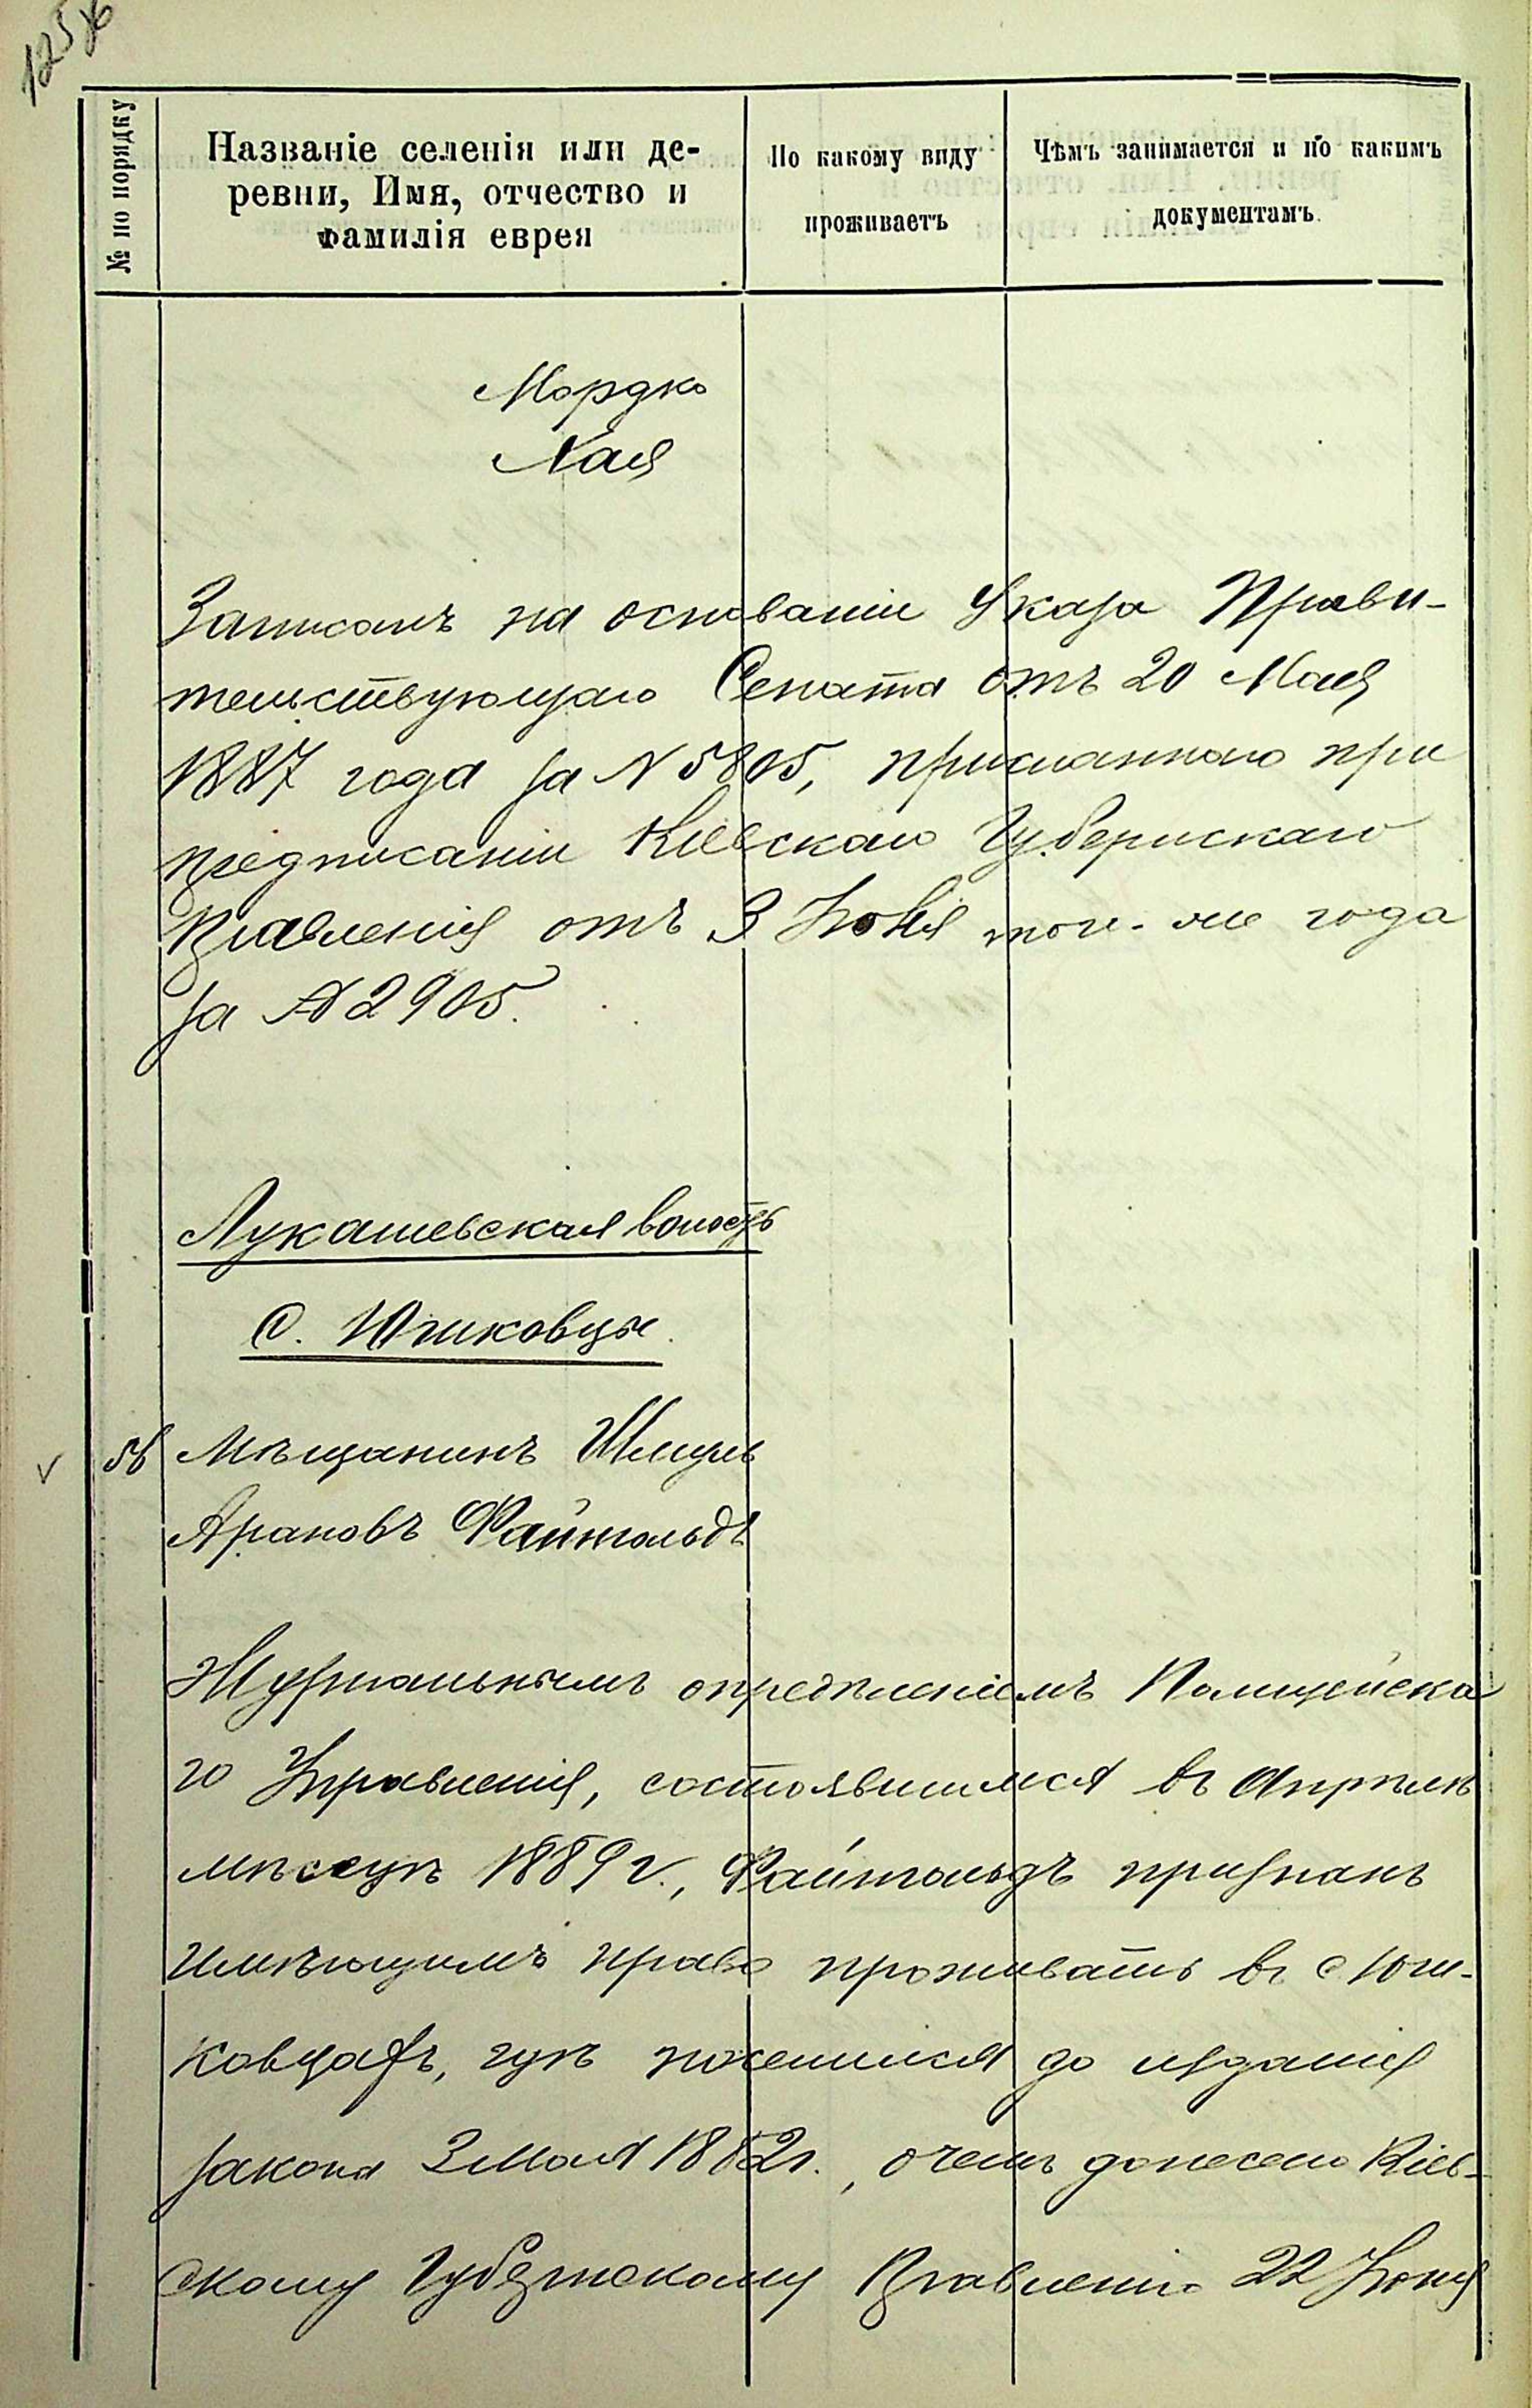 № по порядку
Названіе селенія или де-
ревни, Имя, отчество и
Фамилія еврея
По какому виду
проживаетъ
Чѣмъ занимается и по какимъ
документамъ.
Мордко
Хая
Записанъ на основаніи Указа Прави-
тельствующаго Сената отъ 20 Мая
1887 года за № 5805, присланнаго при
предписаніи Кіевскаго Губернскаго
Правленія отъ 3 Іюня того-же года
за № 2905.
Лукашевская волость
С. Юшковцы.
56 Мѣщанинъ Шмуль
Арановъ Файнгольдъ
Журнальнымъ опредѣленіемъ Полицейска
го Управленія, состоявшимся въ Апрѣлѣ
мѣсяцѣ 1889 г., Файнгольдъ признанъ
имѣющимъ право проживать въ с Юш-
ковцахъ, гдѣ поселился до изданія
закона 3 Мая 1882 г., о чемъ донесено Кіев-
скому Губернскому Правленію 22 Іюня